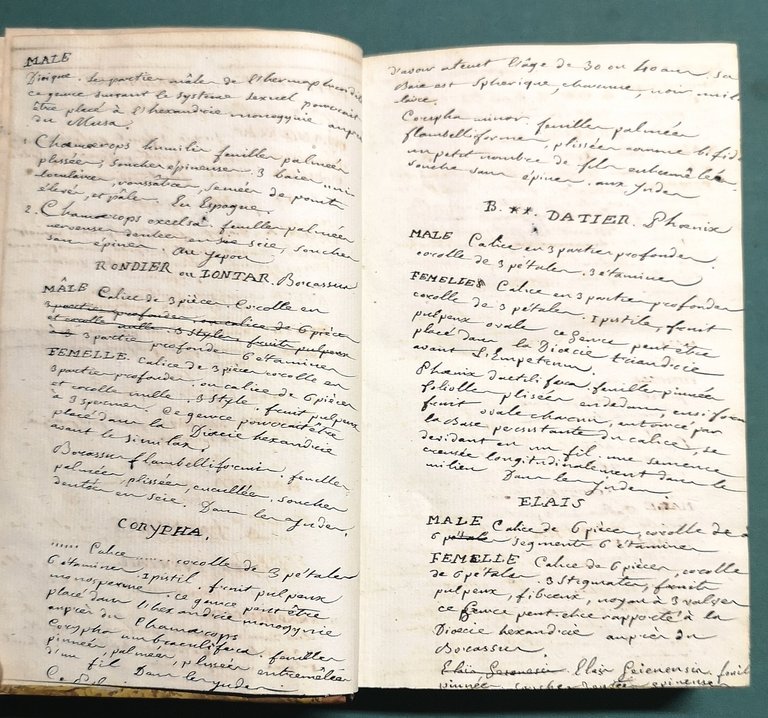 MALE
Dioique. les parties mâles de l'hermaphrodite
ce genre suivant le systeme sexuel pouvoit
être placé à l'hexandrie monogynie auprès
du Musa.
1. Chamærops humilis feuilles palmées
plissées, souches epineuses. 3 baies, uni-
loculaires, roussâtres, semées de points
élevés, et pâles. En Espagne.
2. Chamærops excelsa, feuilles palmées
nerveuses dentées en soie, souches
sans épines. Au Japon
RONDIER ou LONTAR. Borassus
MÂLE Calice de 3 pièces Corolle en
3 parties profondes ou calice de 6 pièces
et corolle nulle. 3 Styles fruits pulpeux
à 3 parties profondes 6 étamines
FEMELLE. Calice de 3 pièces corolle en
3 parties profondes, ou calice de 6 pièces
et corolle nulle, 3 Styles. fruit pulpeux
à 3 spermes. Ce genre pourroit être
placé dans la Diœcie hexandrie
avant le Similax.
Borassus flambelliformis, feuilles
palmées, plissées, cucullées, souches
dentées en scie. Dans les Indes.
CORYPHA.
...... Calice ...... corolle de 3 pétales
6 étamines. 1 pistil, fruit pulpeux
monosperme. ce genre peut être
placé dans l'hexandrie monogynie
auprès du Chamærops
Corypha umbraculifera. feuilles
pinnées, palmées, plissées entremêlées
d'un fil Dans les Indes.
d'avoir atteint l'âge de 30 ou 40 ans. sa
Baie est Spherique, charnue,
Corypha minor. feuilles palmées
flambelliformes, plissées comme bifides
un petit nombre de fils entremêlés.
souche sans épines. aux Indes
B. **. DATIER. Phœnix
MALE Calice en 3 parties profondes.
corolle de 3 pétales. 3 étamines
FEMELLES Calice en 3 parties profondes
corolle de 3 pétales. 1 pistile, fruit
pulpeux ovale ce Genre peut être
placé dans la Diœcie triandrie
avant l'Empetrum.
Phœnix dactilifera, feuilles pinnées
folioles plissées en dedans, ensiformes
fruit ovale charnu, entouré par
la Base persistante du calice, se
devidant en un fil, une semence
creusée longitudinalement dans le
milieu Dans les Indes
ELAIS
MALE Calice de 6 pièces, corolle de
6 pétales segments 6 étamines
FEMELLE Calice de 6 pièces, corolle
de 6 pétales. 3 Stigmates, fruits
pulpeux, fibreux, noyau à 3 valves
ce Genre peut être rapporté à la
Diœcie hexandrie auprès du
Borassus.
Elais Elais feuilles
pinnées, souches dentées epineuses